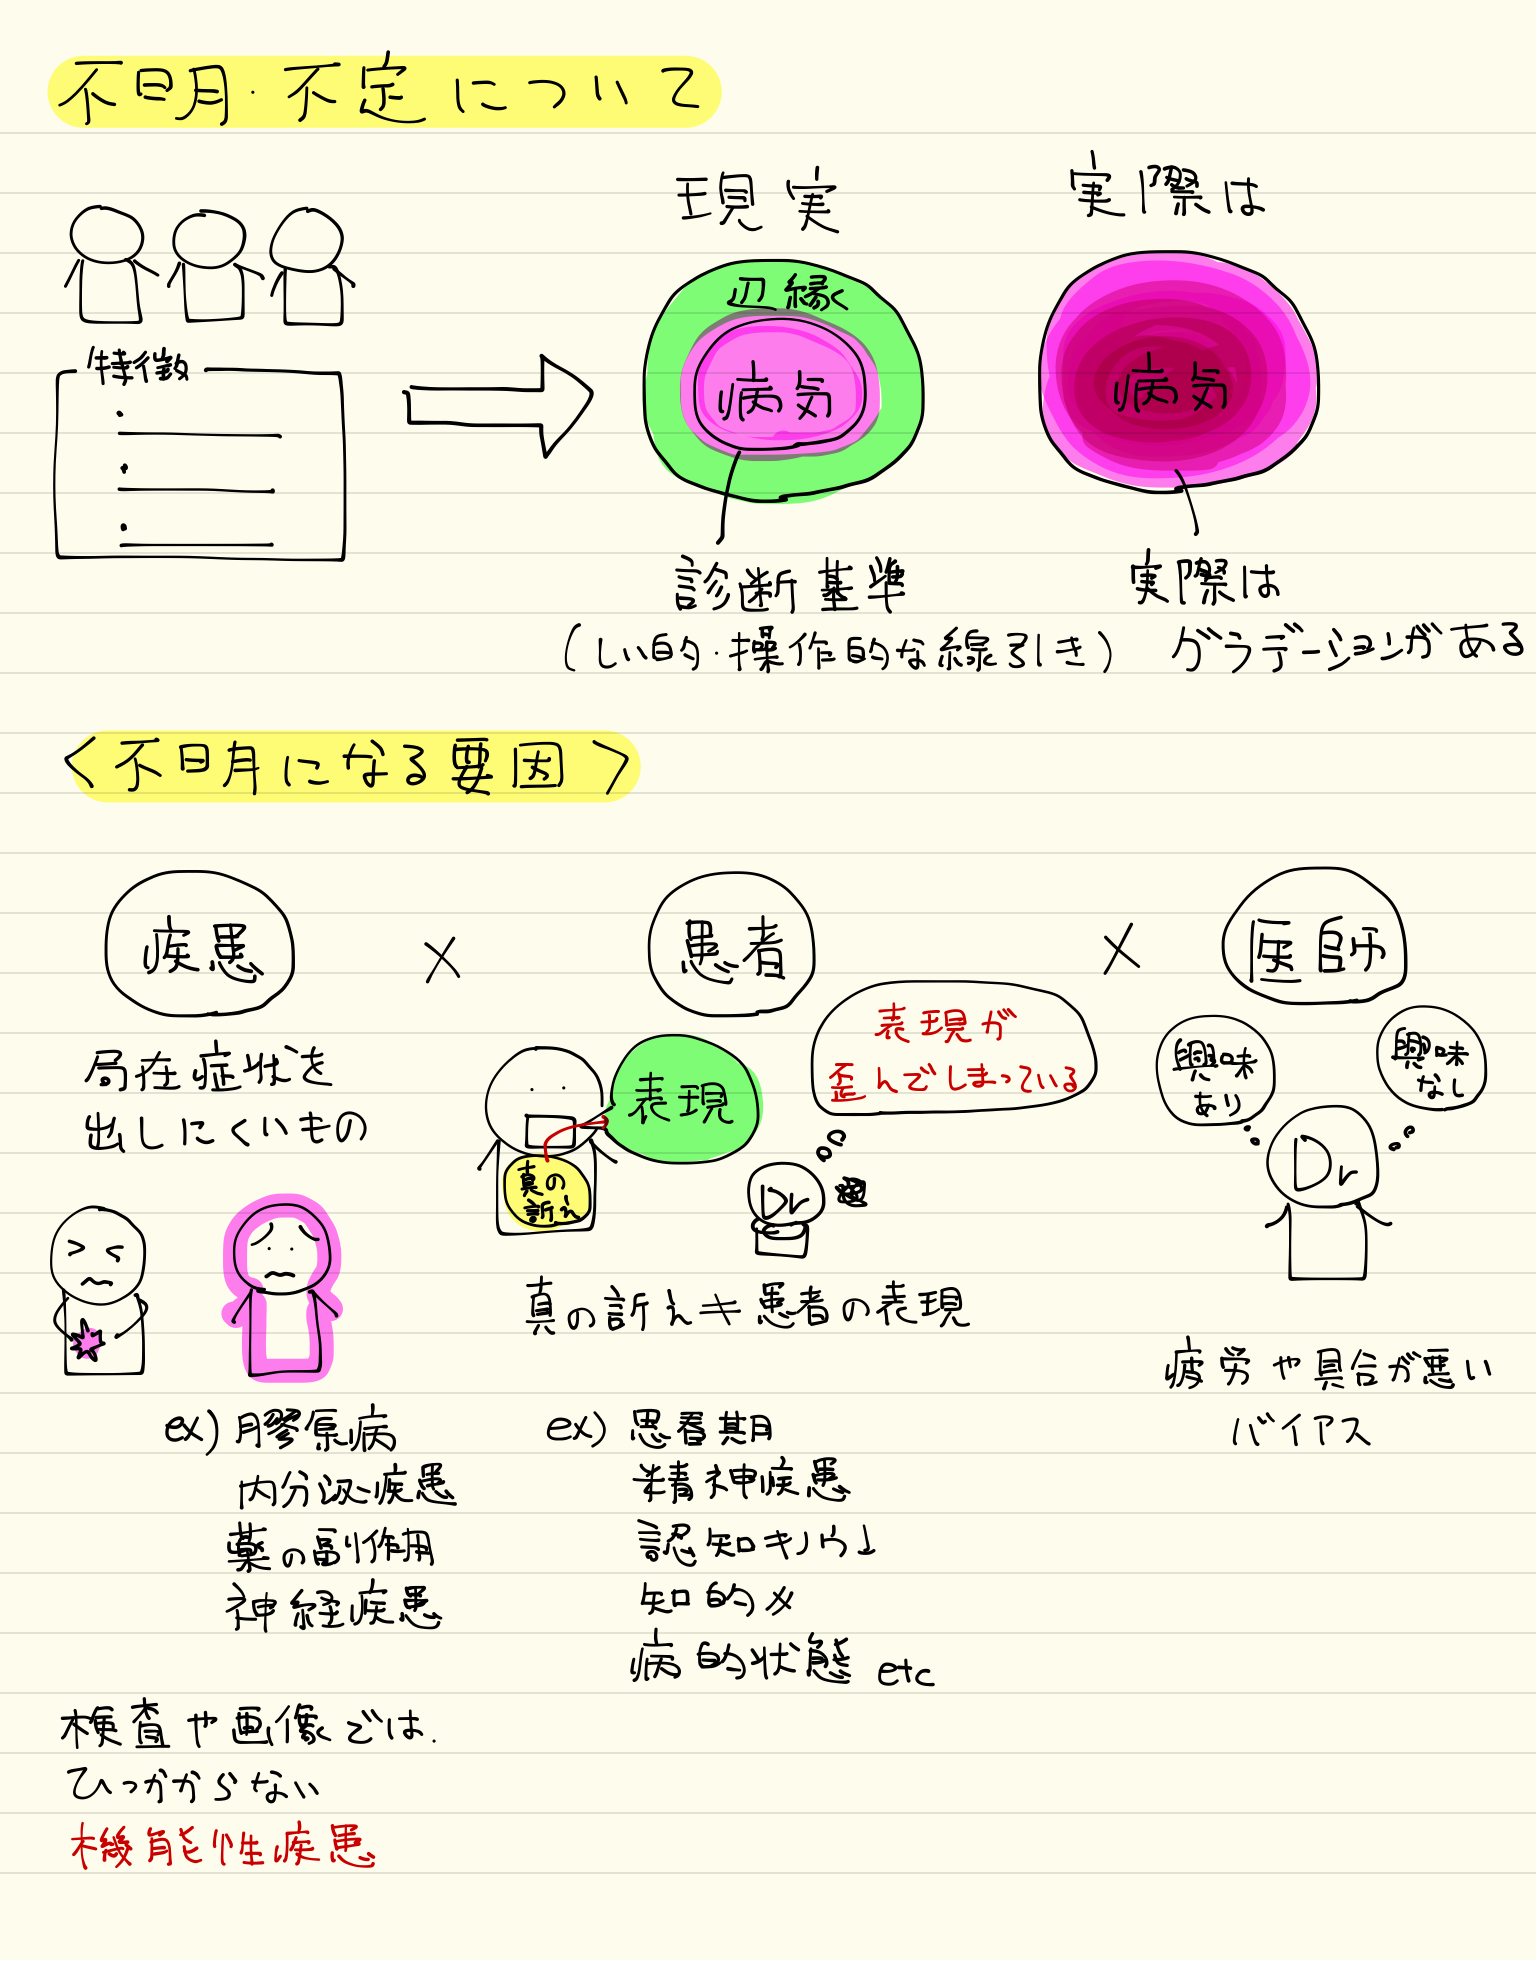 不明・不定について
特徴
現実
辺縁
病気
診断基準
(しい的・操作的な線引き)
実際は
病気
実際は
グラデーションがある
〈不明になる要因〉
疾患 × 患者 × 医師
局在症状を
出しにくいもの
ex) 膠原病
内分泌疾患
薬の副作用
神経疾患
検査や画像では
ひっかからない
機能性疾患
表現
真の
訴え
表現が
歪んでしまっている
Dr
真の訴え≠患者の表現
ex) 思春期
精神疾患
認知キノウ↓
知的〃
病的状態 etc
興味
あり
興味
なし
Dr
疲労や具合が悪い
バイアス